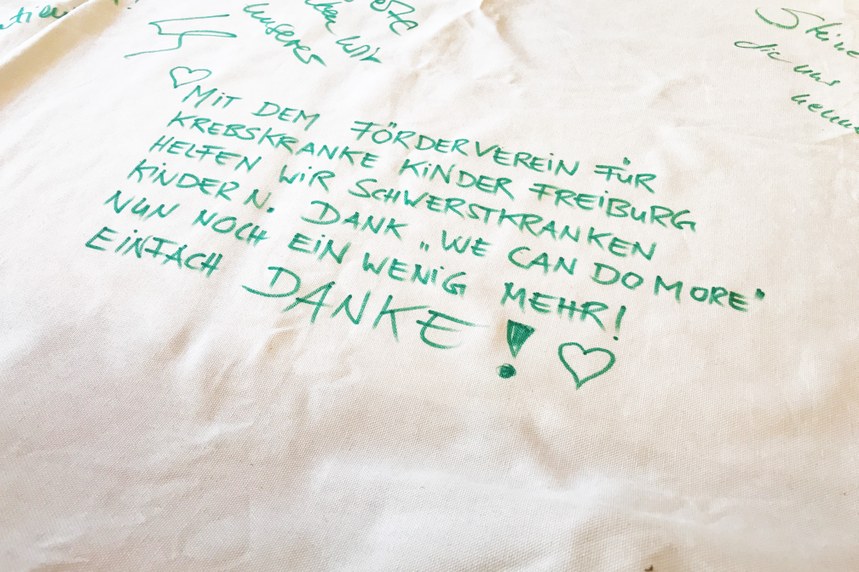 unseres
wir
♡ MIT DEM FÖRDERVEREIN FÜR
KREBSKRANKE KINDER FREIBURG
HELFEN WIR SCHWERSTKRANKEN
KINDERN. DANK „WE CAN DO MORE"
NUN NOCH EIN WENIG MEHR!
EINFACH DANKE! ♡
die uns